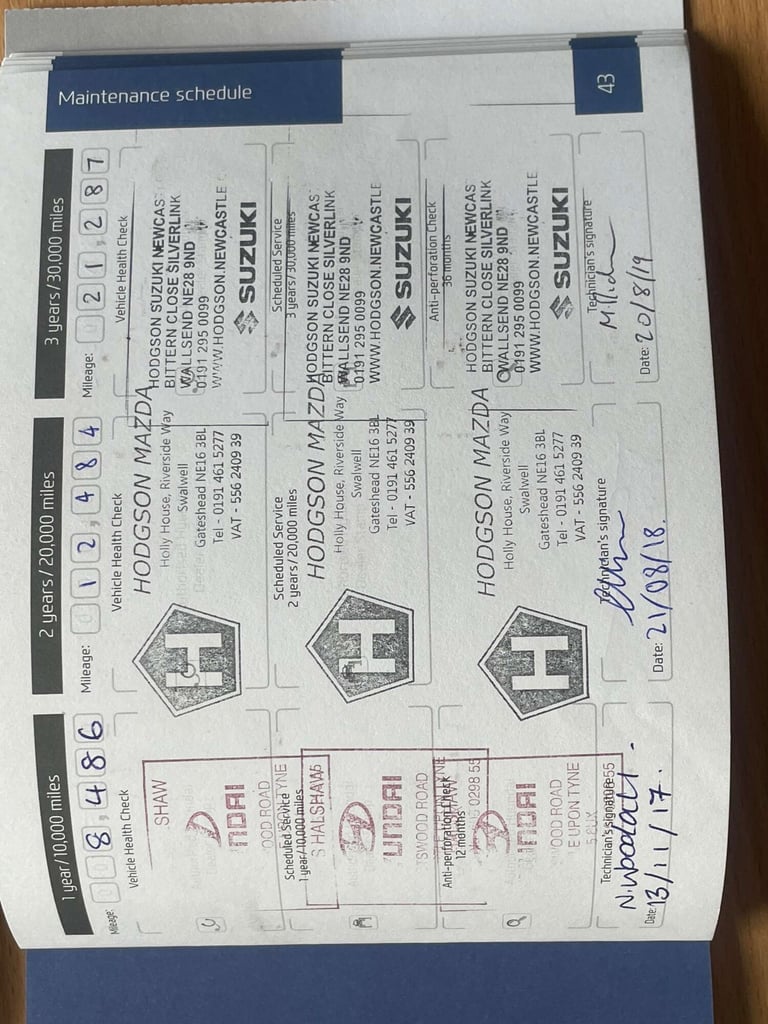 Maintenance schedule
43
1 year/10,000 miles
Mileage: 0 0 8, 4 8 6
Vehicle Health Check
SHAW
NDAI
OOD ROAD
N TYNE
Scheduled Service
1 year/10,000 miles
S HALSHAW
UNDAI
TSWOOD ROAD
Anti-perforation Check
12 months
0298 55
NDAI
OOD ROAD
E UPON TYNE
Technician's signature
N. Woodall
Date: 13/11/17.
2 years/20,000 miles
Mileage: 0 1 2, 4 8 4
Vehicle Health Check
H
HODGSON MAZDA
Holly House, Riverside Way
Swalwell
Gateshead NE16 3BL
Tel - 0191 461 5277
VAT - 556 2409 39
Scheduled Service
2 years/20,000 miles
H
HODGSON MAZDA
Holly House, Riverside Way
Swalwell
Gateshead NE16 3BL
Tel - 0191 461 5277
VAT - 556 2409 39
H
HODGSON MAZDA
Holly House, Riverside Way
Swalwell
Gateshead NE16 3BL
Tel - 0191 461 5277
VAT - 556 2409 39
Technician's signature
Date: 21/08/18.
3 years/30,000 miles
Mileage: 0 2 1, 2 8 7
Vehicle Health Check
HODGSON SUZUKI NEWCAS
BITTERN CLOSE SILVERLINK
WALLSEND NE28 9ND
0191 295 0099
WWW.HODGSON.NEWCASTLE
SUZUKI
Scheduled Service
3 years/30,000 miles
HODGSON SUZUKI NEWCAS
BITTERN CLOSE SILVERLINK
WALLSEND NE28 9ND
0191 295 0099
WWW.HODGSON.NEWCASTLE
SUZUKI
Anti-perforation Check
36 months
HODGSON SUZUKI NEWCAS
BITTERN CLOSE SILVERLINK
WALLSEND NE28 9ND
0191 295 0099
WWW.HODGSON.NEWCASTLE
SUZUKI
Technician's signature
Date: 20/8/19